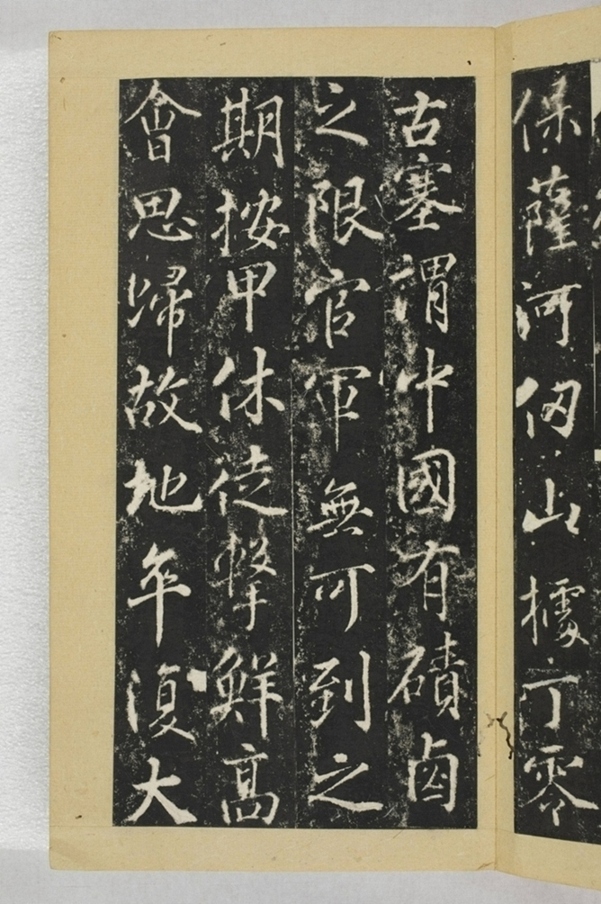 保薩河仞山據丁零
古塞謂中國有磧鹵
之限官軍無可到之
期按甲休徒擊鮮高
會思歸故地年復大